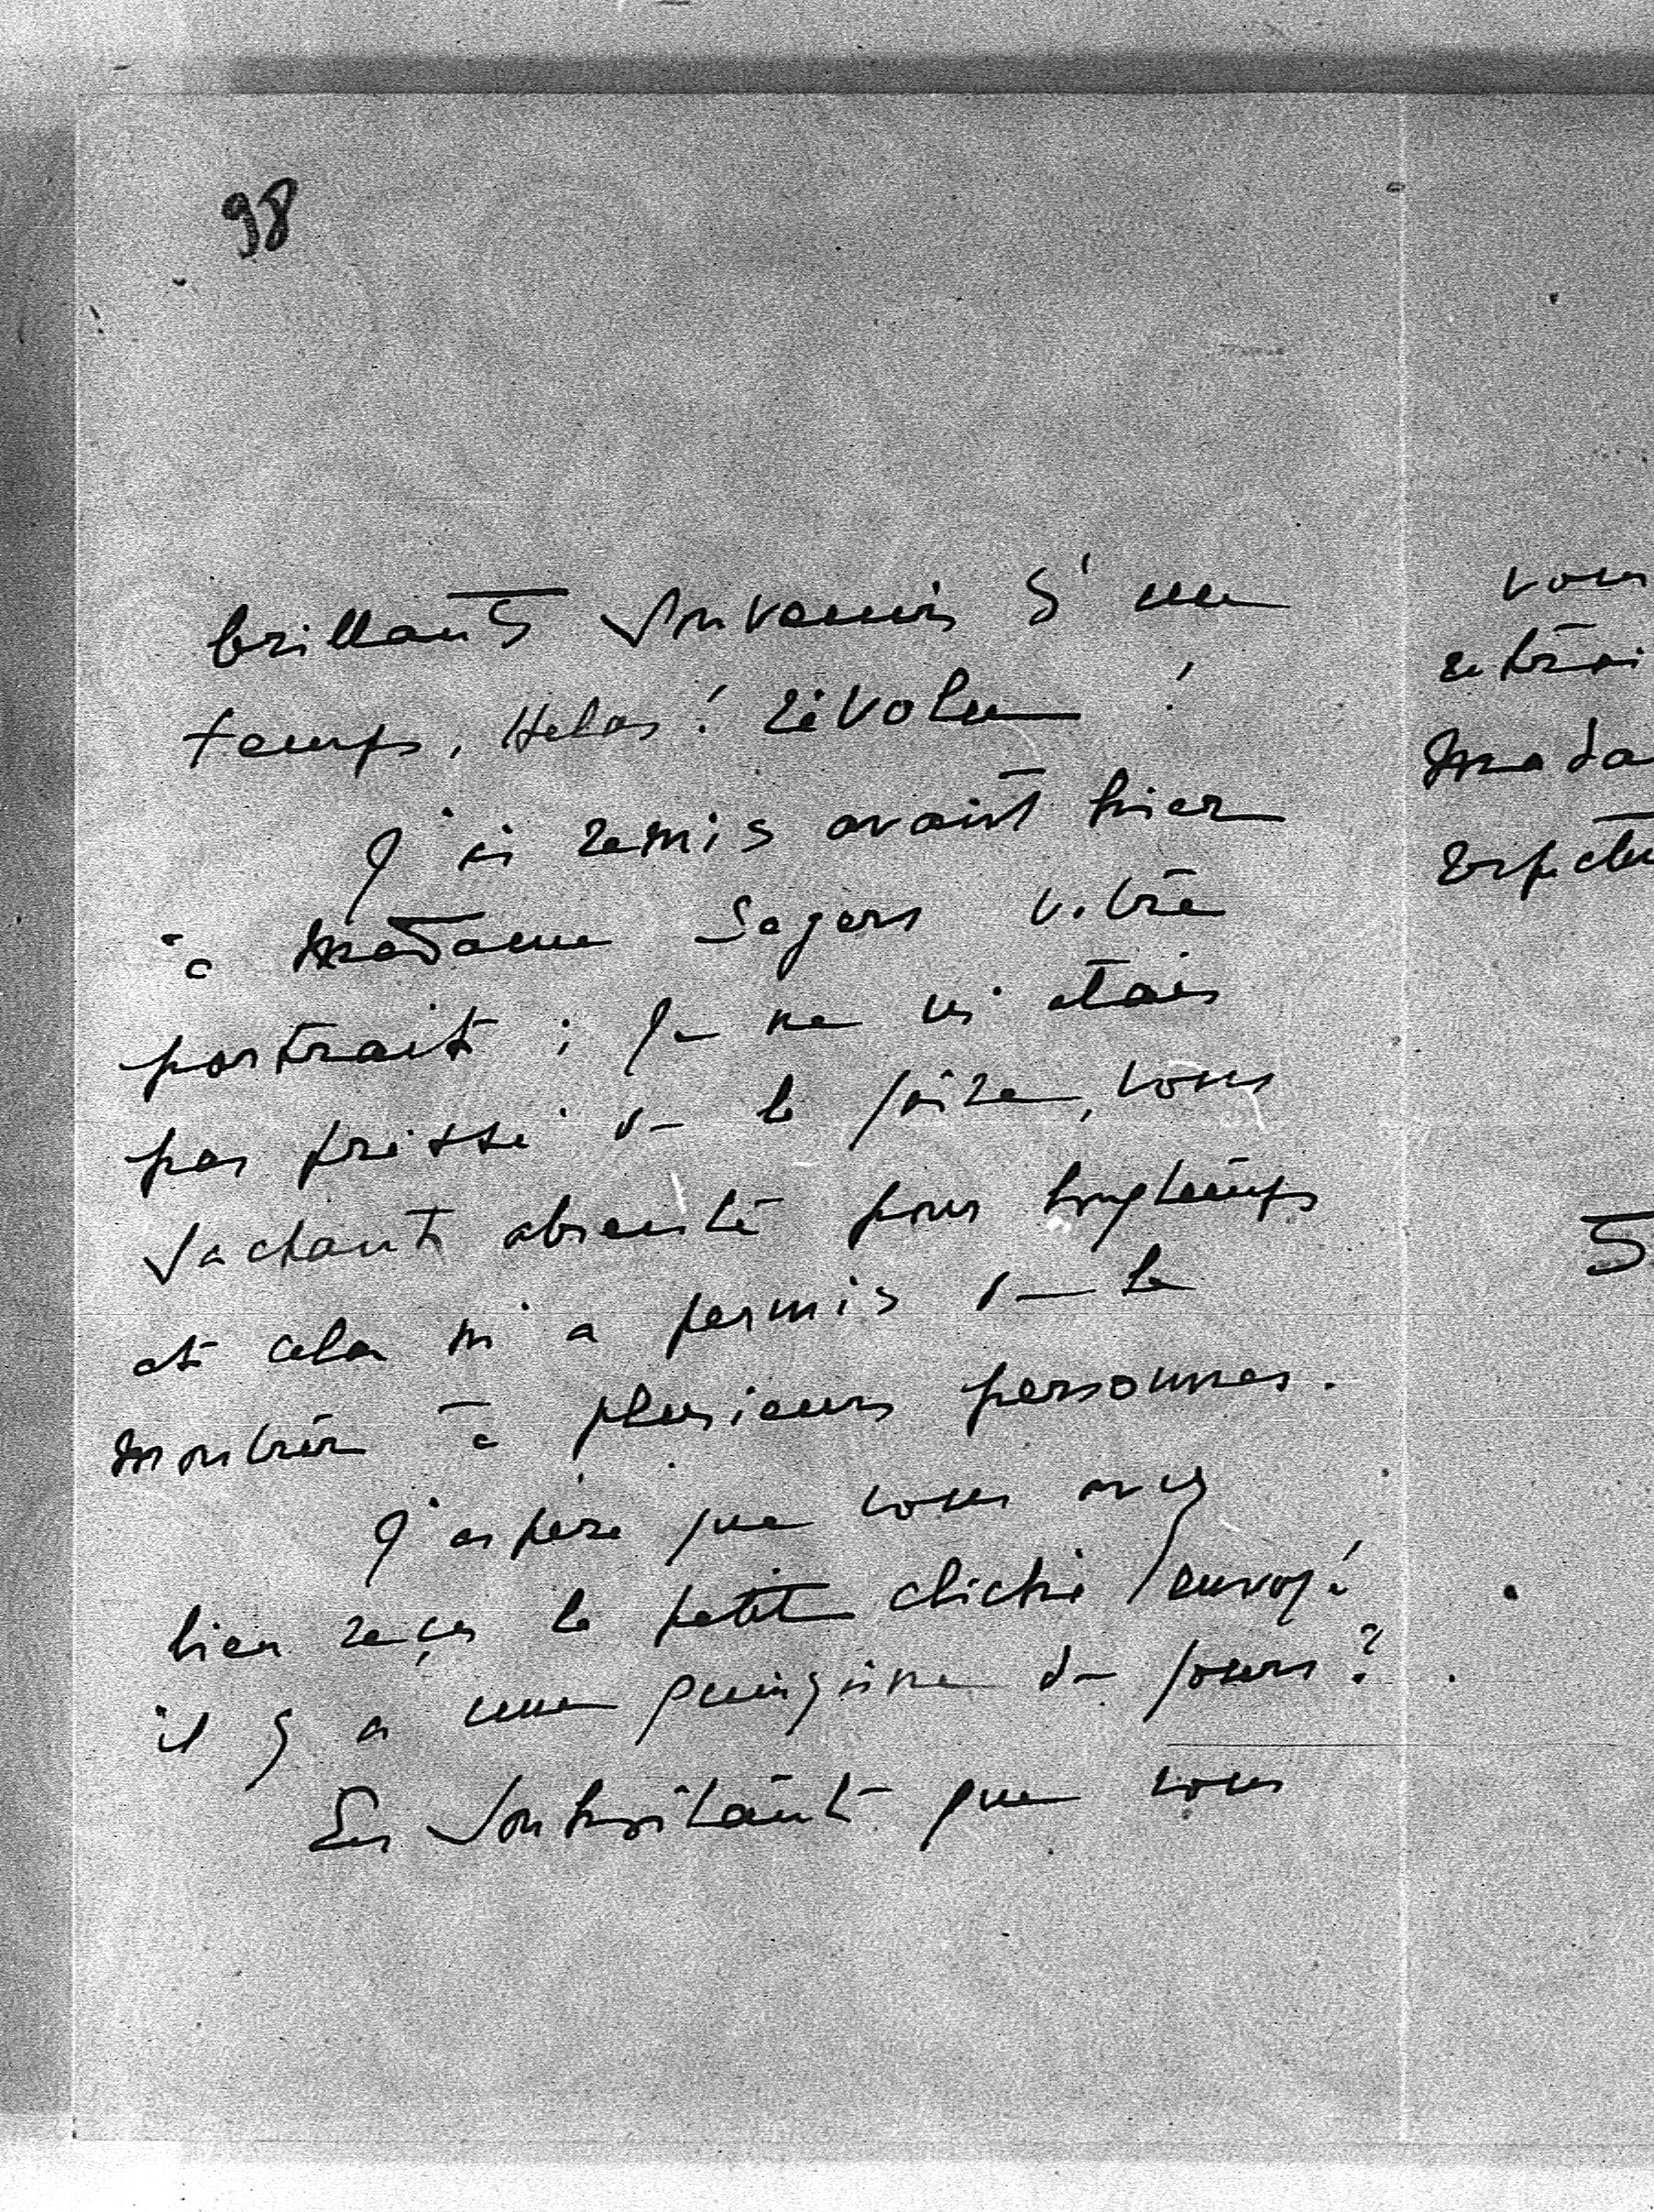 98
brillants souvenirs d'un
temps, Helas! révolu !
J'ai remis avant hier
à Madame Segers votre
portrait ; Je ne m'étais
pas pressé de le faire, vous
sachant absente pour longtemps
et cela m'a permis de le
montrer à plusieurs personnes.
J'espère que vous avez
bien reçu le petit cliché envoyé
il y a une quinzaine de jours ?
En souhaitant que vous
vous
Mada